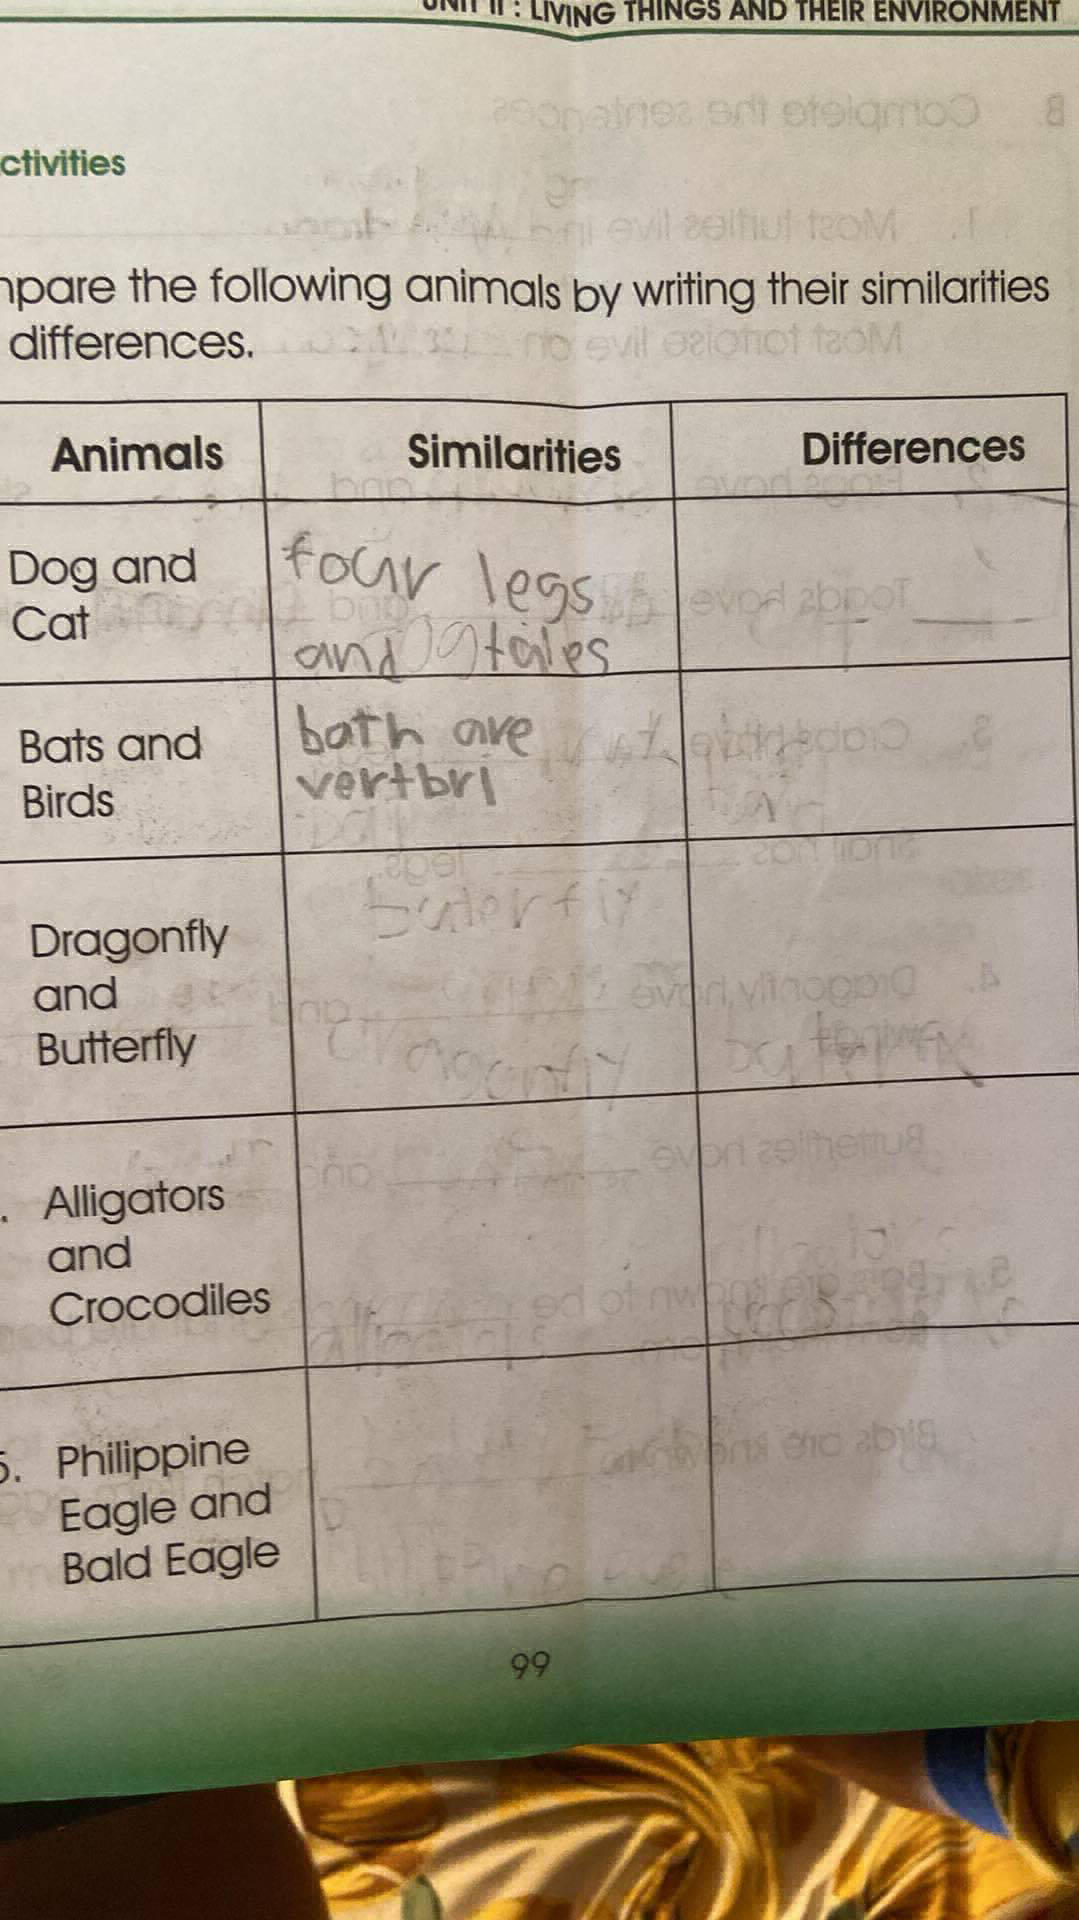 UNIT II : LIVING THINGS AND THEIR ENVIRONMENT
ctivities
mpare the following animals by writing their similarities
differences.
Animals Similarities Differences
Dog and
Cat
four legs
and tales
Bats and
Birds
bath are
vertbri
Dragonfly
and
Butterfly
buterfly
dragonfly
. Alligators
and
Crocodiles
5. Philippine
Eagle and
Bald Eagle
99